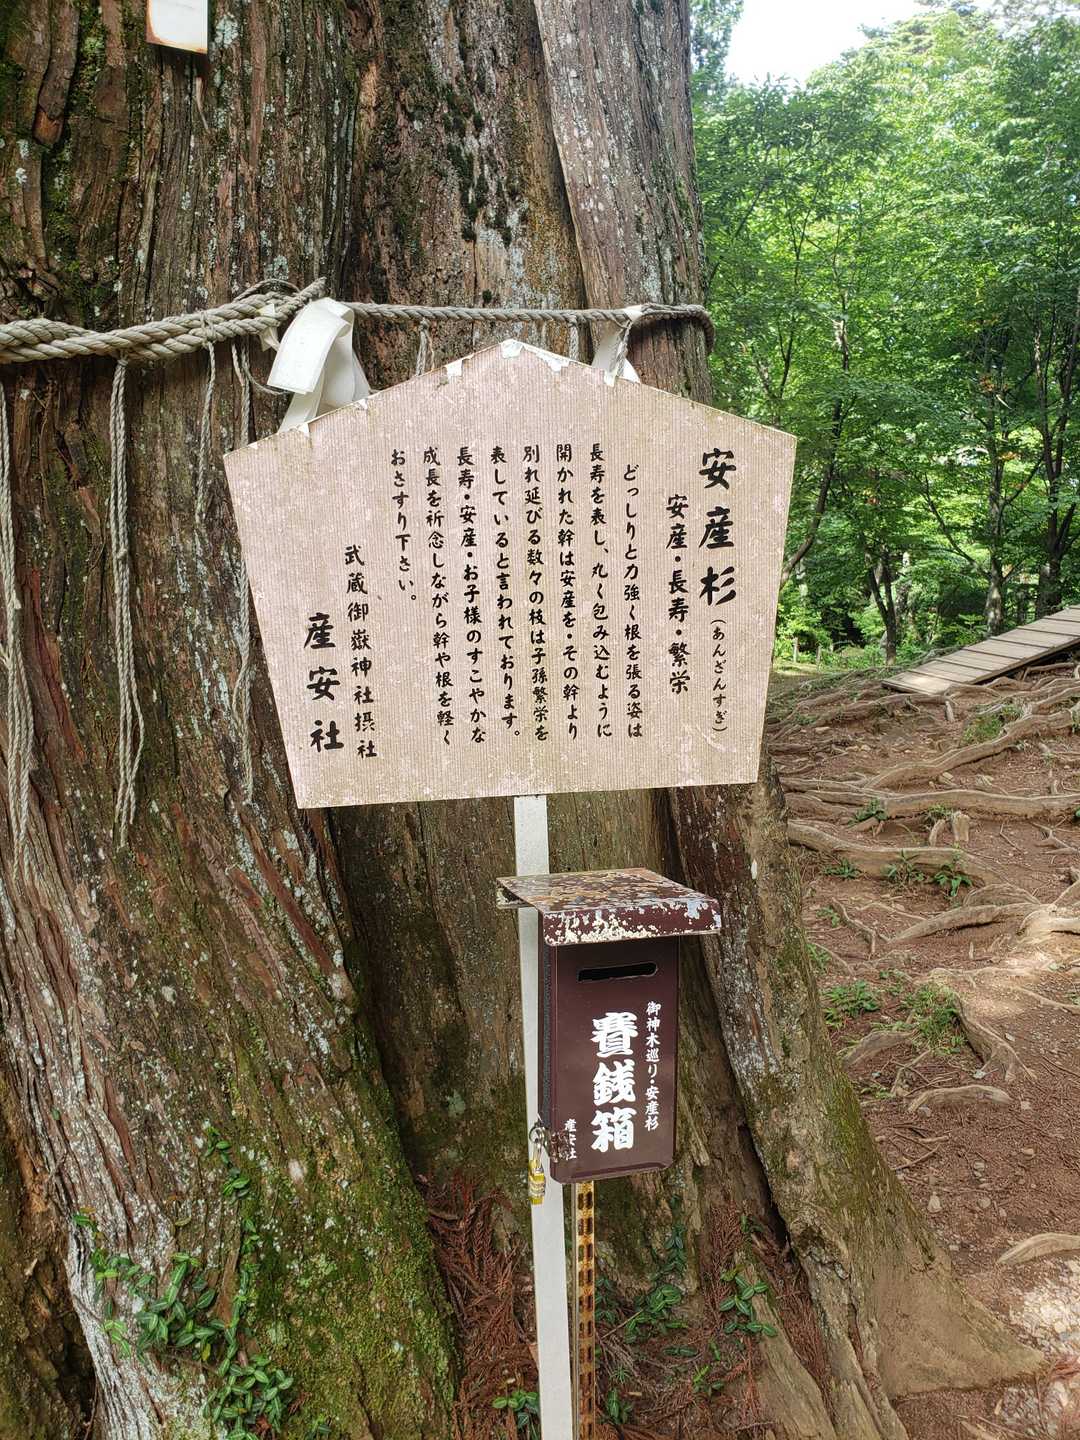 安産杉（あんざんすぎ）
安産・長寿・繁栄
どっしりと力強く根を張る姿は
長寿を表し、丸く包み込むように
開かれた幹は安産を・その幹より
別れ延びる数々の枝は子孫繁栄を
表していると言われております。
長寿・安産・お子様のすこやかな
成長を祈念しながら幹や根を軽く
おさすり下さい。
武蔵御嶽神社摂社
産安社
御神木巡り・安産杉
賽銭箱
産安社